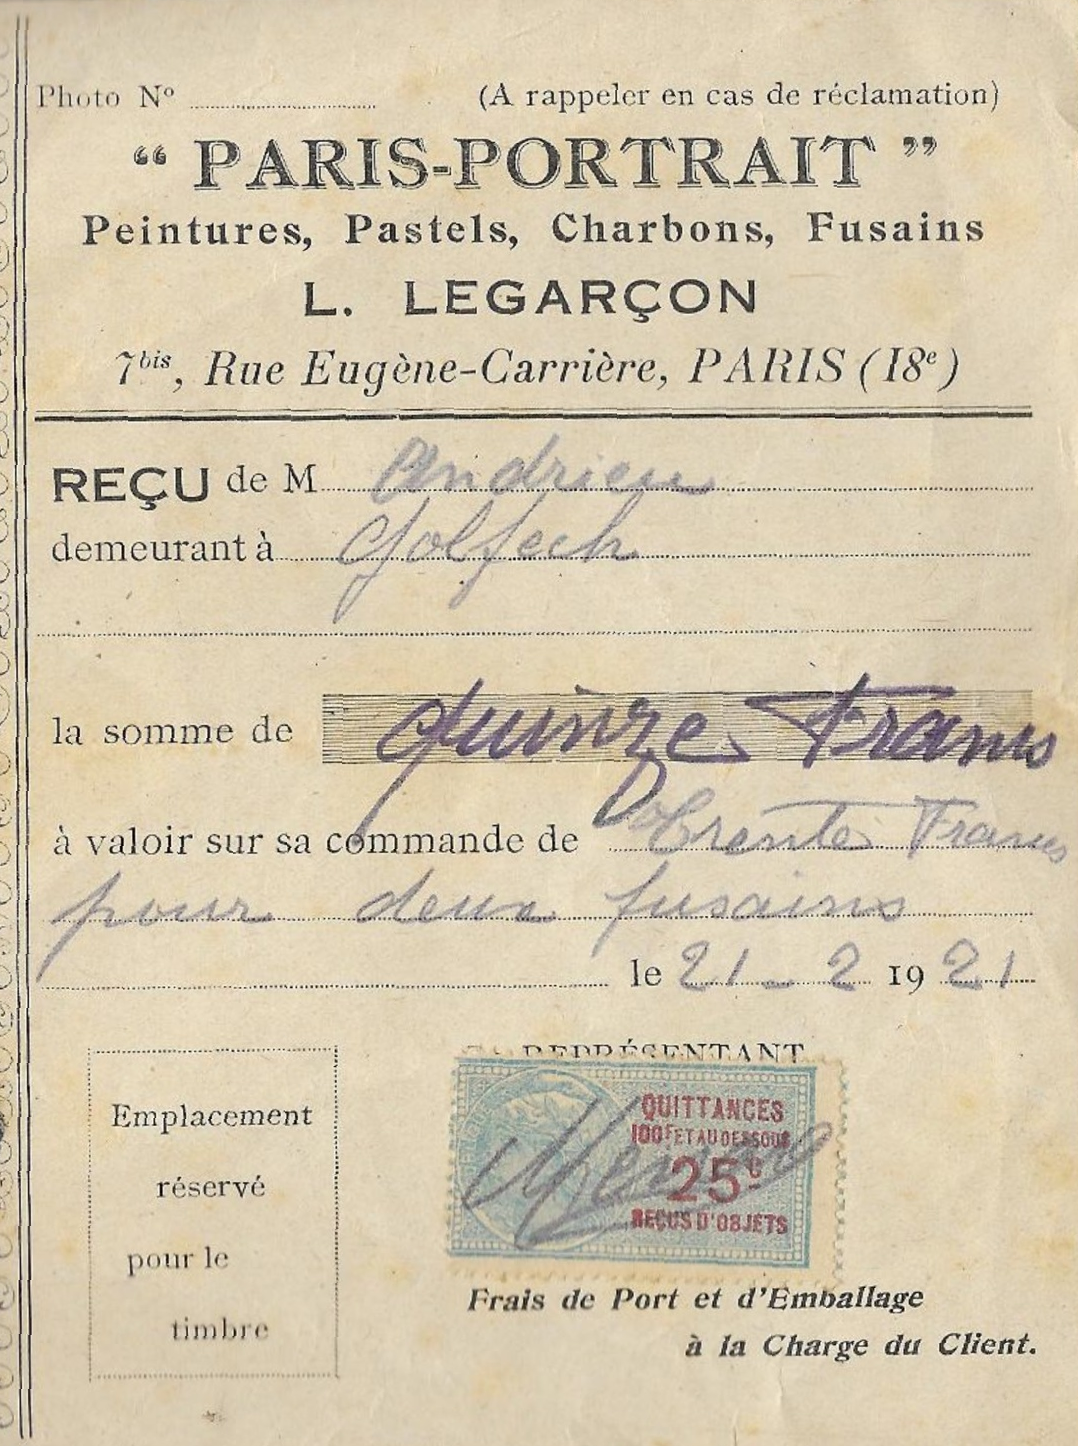 Photo Nº (A rappeler en cas de réclamation)
“ PARIS-PORTRAIT ”
Peintures, Pastels, Charbons, Fusains
L. LEGARÇON
7bis, Rue Eugène-Carrière, PARIS (18e)
REÇU de M Andrieu
demeurant à Golfech
la somme de quinze Francs
à valoir sur sa commande de Trente Francs
pour deux fusains
le 21 - 2 1921
REPRÉSENTANT
Emplacement
réservé
pour le
timbre
QUITTANCES
100F ET AU DESSOUS
25c
REÇUS D'OBJETS
Frais de Port et d'Emballage
à la Charge du Client.